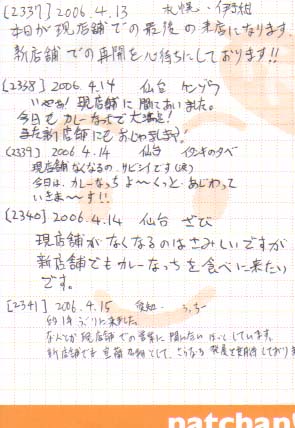 [2337] 2006.4.13 札幌・伊勢
本日が現店舗での最後の来店になります。
新店舗での再開を心待ちにしております!!
[2338] 2006.4.14 仙台 ケンゾウ
いやぁ! 現店舗に間にあいました。
今日もカレーなっちで大満足!
また新店舗にもおじゃまします!
[2339] 2006.4.14 仙台 イタキのタベ
現店舗なくなるの、サビシイです(泣)
今日は、カレーなっち よ〜くっと、あじわって
いきま〜す!!
[2340] 2006.4.14 仙台 ぜひ
現店舗がなくなるのはさみしいですが
新店舗でもカレーなっちを食べに来たい
です。
[2341] 2006.4.15 愛知 うっちー
約1年ぶりに来ました。
なんとか現店舗での営業に間にあい ほっとしています。
新店舗でも
patchan